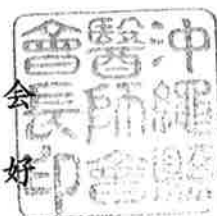 沖繩縣
醫師會
會長印
会
好